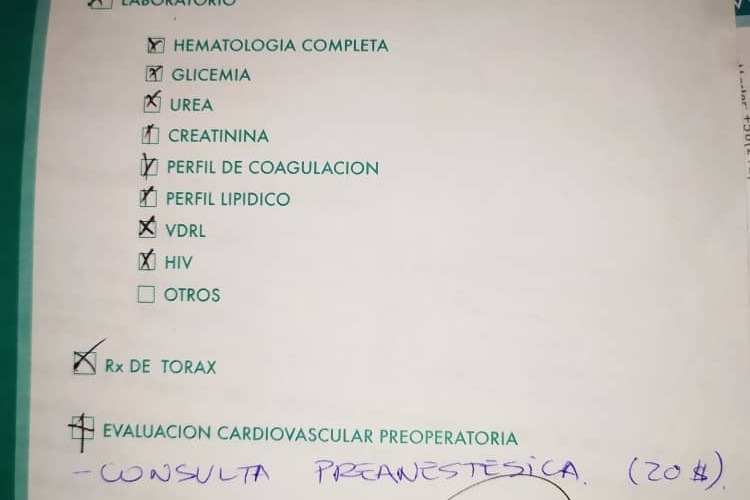 LABORATORIO
HEMATOLOGIA COMPLETA
GLICEMIA
UREA
CREATININA
PERFIL DE COAGULACION
PERFIL LIPIDICO
VDRL
HIV
OTROS
Rx DE TORAX
EVALUACION CARDIOVASCULAR PREOPERATORIA
- CONSULTA PREANESTESICA. (20 $).